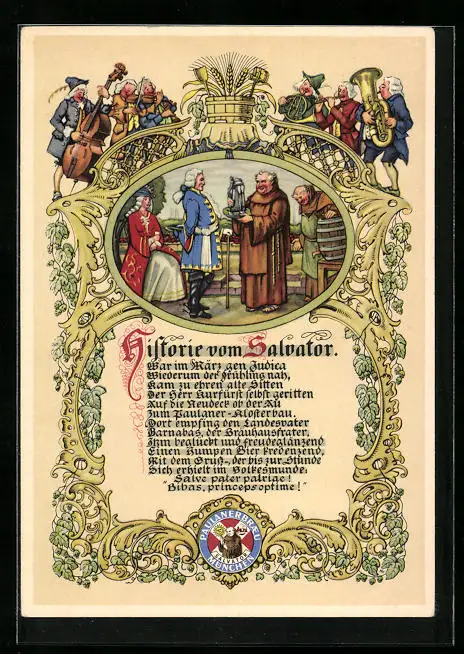 Historie vom Salvator.
War im März gen Judica
Wiederum der Frühling nah,
Kam zu ehren alte Sitten
Der Herr Kurfürst selbst geritten
Auf die Neudeck ob der Au
Zum Paulaner-Klosterbau.
Dort empfing den Landesvater
Barnabas, der Bräuhausfrater,
Ihm beglückt und freudeglänzend
Einen Humpen Bier kredenzend,
Mit dem Gruß, der bis zur Stunde
Sich erhielt im Volkesmunde:
Salve pater patriae!
"Bibas, princeps optime!"
PAULANERBRÄU
SALVATOR
MÜNCHEN